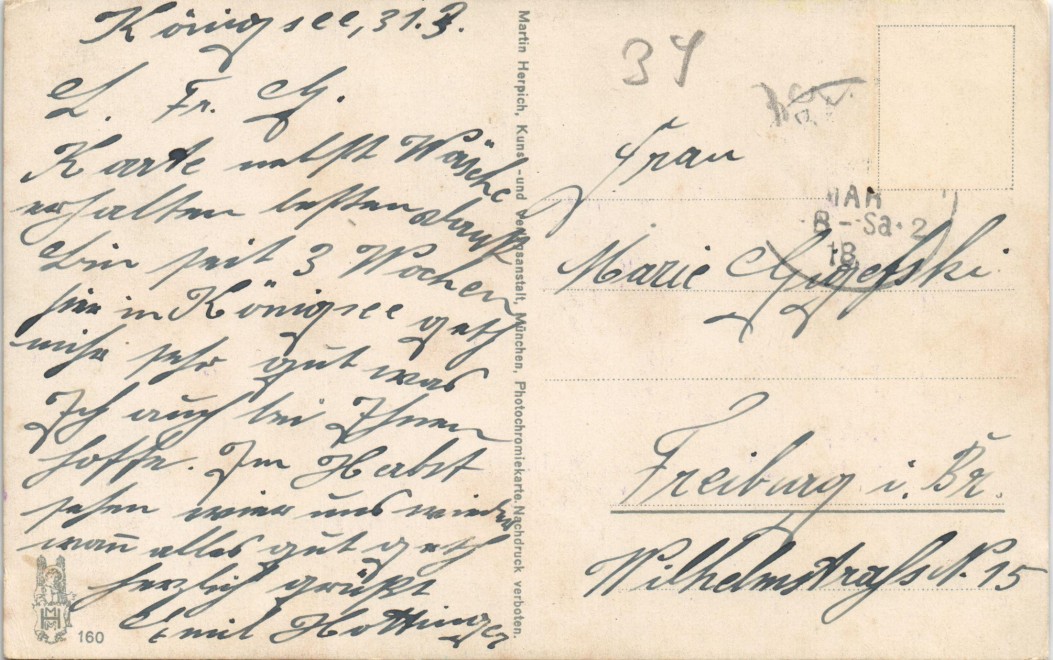 Königsee, 31. 3.
L. Fr. G.
Karte nebst Wäsche
erhalten besten Dank
bin seit 3 Wochen
hier in Königsee geth
mihr sehr gut was
Ich auch bei Ihnen
hoffe. Im Habst
sehen wier uns wieder
wan̄ alles gut geth
herzlich grüßt
Emil Hottinger
160
Martin Herpich, Kunst-und Verlagsanstalt, München, Photochromiekarte. Nachdruck verboten.
34
Frau
MAR
B-Sa. 2
18
Marie
Freiburg i. Br.
Wilhelmstraße N. 15